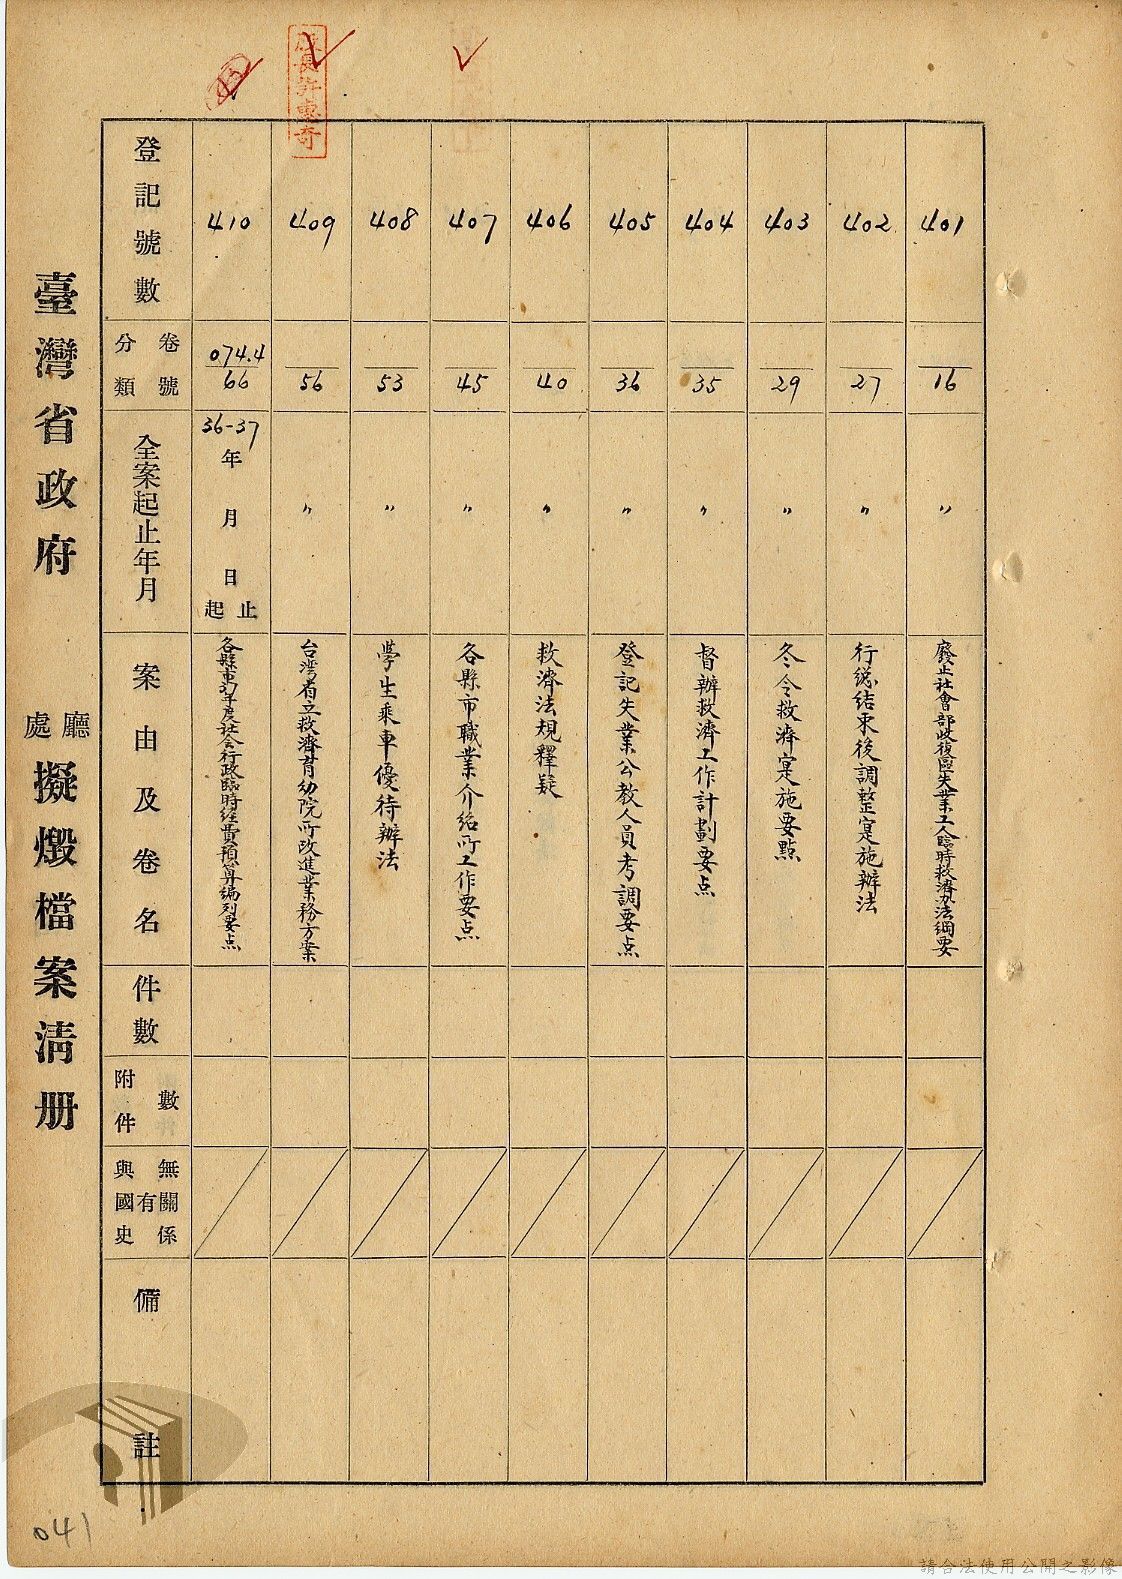 臺灣省政府 處廳 擬燬檔案清册
登記號數
410
409
408
407
406
405
404
403
402
401
分類卷號
074.4/66
56
53
45
40
36
35
29
27
16
全案起止年月
36-37年 月 日起止
〃
〃
〃
〃
〃
〃
〃
〃
〃
案由及卷名
各縣市37年度社会行政臨時経費預算編列要点
台湾省立救濟育幼院所改進業務方案
學生乘車優待辦法
各縣市職業介紹所工作要点
救濟法規釋疑
登記失業公教人員考調要点
督辦救濟工作計劃要点
冬令救濟寔施要點
行総結束後調整寔施辦法
廢止社會部收復區失業工人臨時救濟办法綱要
件數
附件數
與國史有無關係
備註
041
請合法使用公開之影像